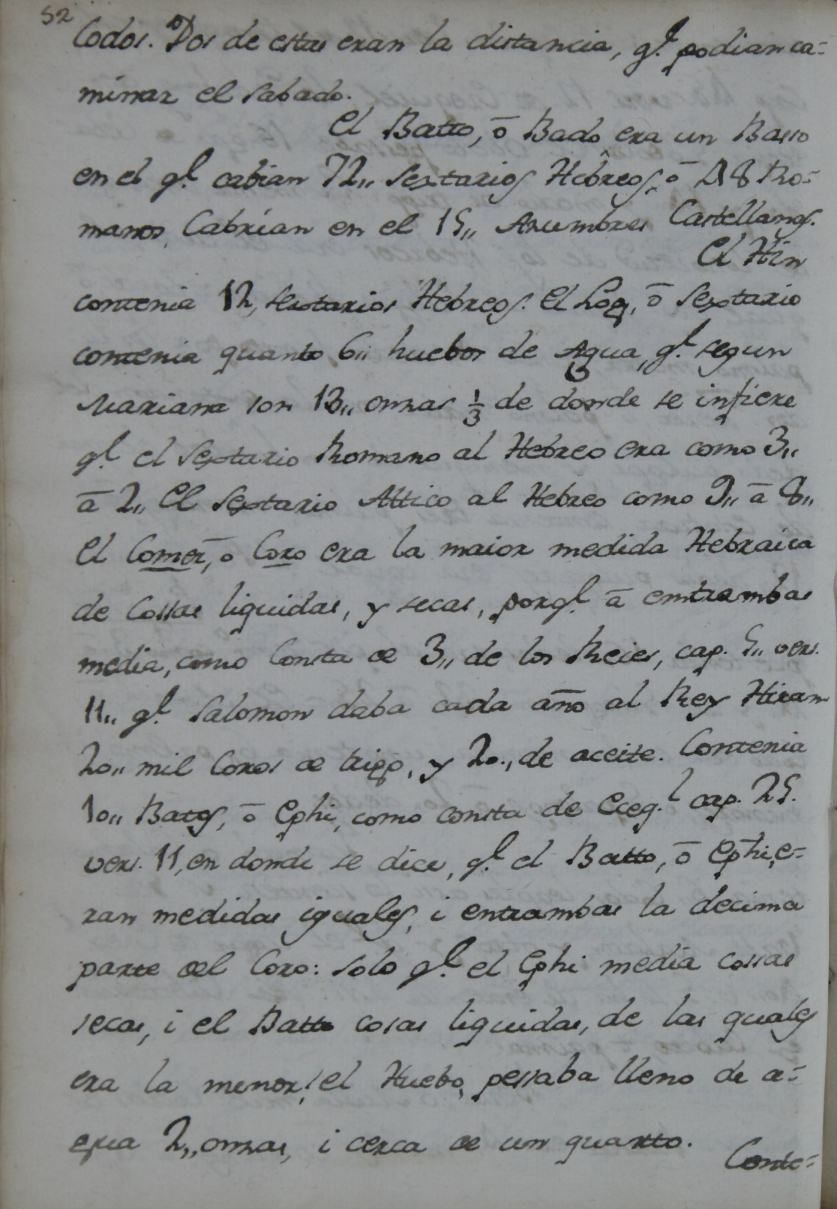 52
Codos. Dos de estas eran la distancia, q.ͤ podian ca=
minar el sabado.
El Batto, ō Bado era un Basso
en el q.ͤ cabian 72,, Sextarios Hebreos, ō 48 Ro=
manos, Cabrian en el 15,, Asumbres Castellanos.
El Hin
contenia 12, sextarios Hebreos. El Log, ō Sextario
contenia quanto 6,, huebos de Agua, q.ͤ segun
Mariana son 13,, onzas 1/3 de donde se infiere
q.ͤ el Sextario Romano al Hebreo era como 3,,
ā 2,, El Sextario Attico al Hebreo como 9,, ā 8,,
El Comer, o Coro era la maior medida Hebraica
de Cossas liquidas, y secas, porq.ͤ ā emtrambas
media, como Consta de 3,, de los Reies, cap. 5,, vers.
11,, q.ͤ Salomon daba cada año al Rey Hiram
20,, mil Coros de trigo, y 20,, de aceite. Contenia
10,, Batos, ō Ephi, como consta de Eceq.ͥ cap. 25.
vers. 11, en donde se dice, q.ͤ el Batto, ō Ephi, e=
ran medidas iguales, i entrambas la decima
parte del Coro: solo q.ͤ el Ephi media cossas
secas, i el Batto cosas liquidas, de las quales
era la menor, el Huebo, pessaba lleno de a=
gua 2,, onzas, i cerca de un quarto.
Conte=